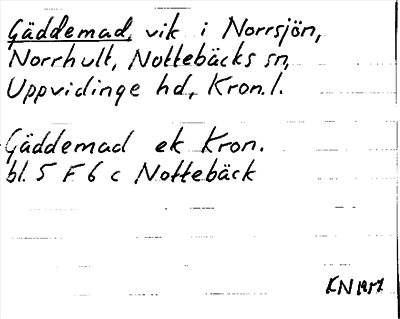 Gäddemad, vik i Norrsjön,
Norrhult, Nottebäcks sn,
Uppvidinge hd, Kron. l.
Gäddemad ek Kron.
bl. 5 F 6 c Nottebäck
KN